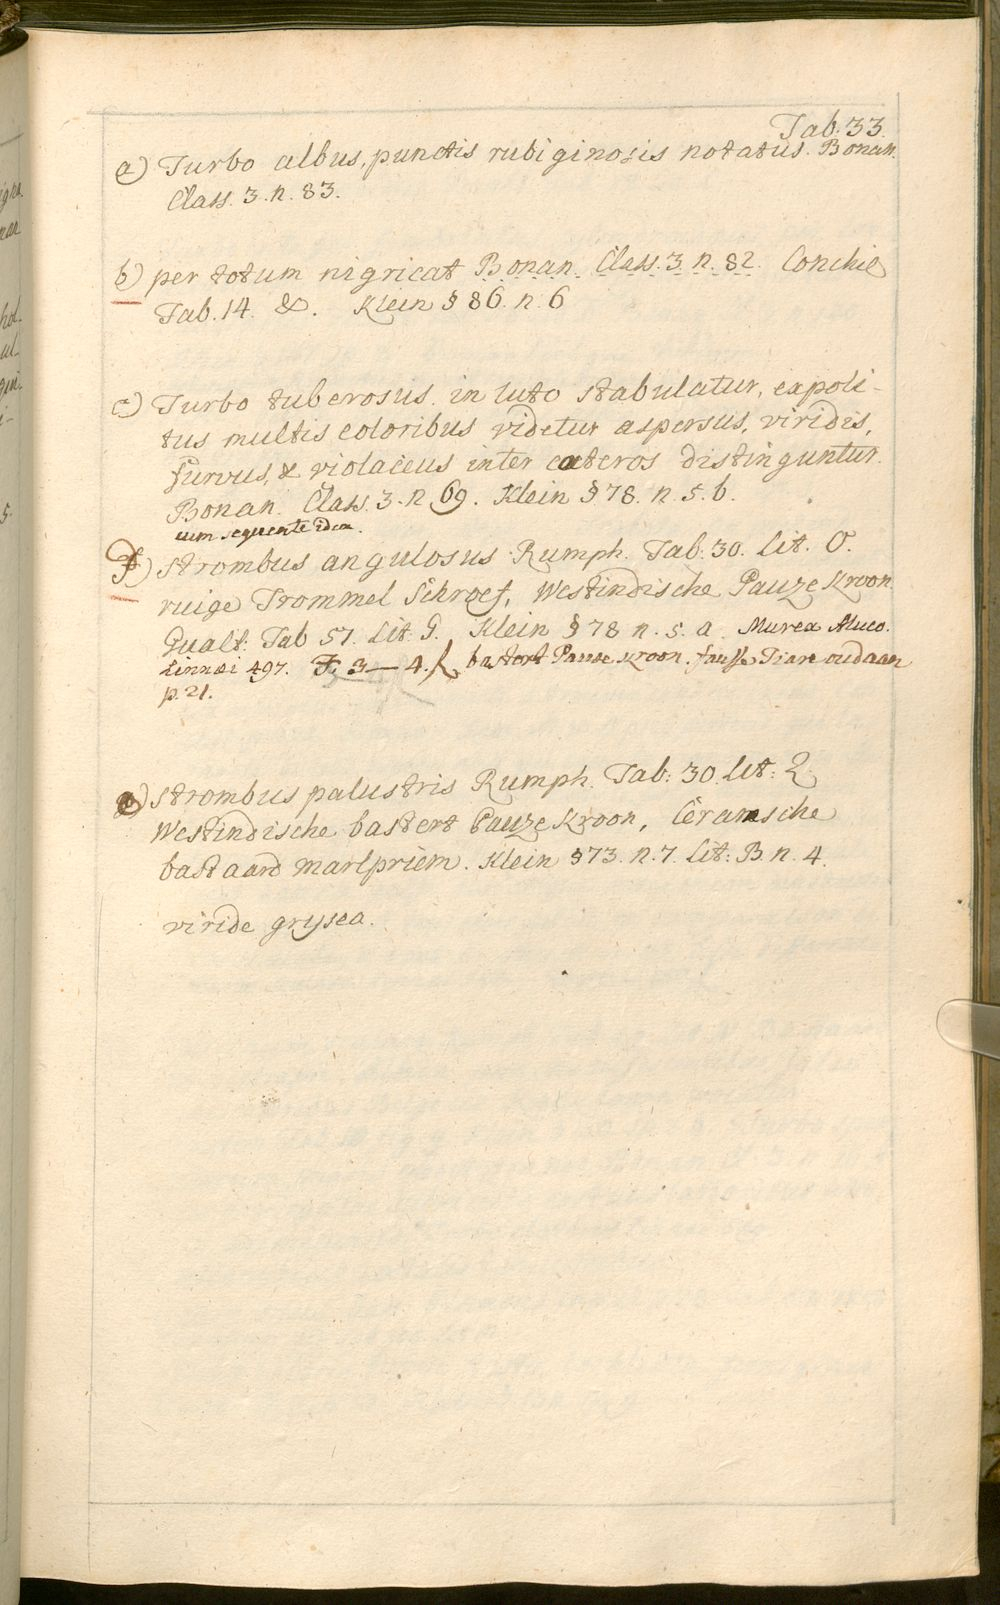 Tab. 33.
a) Turbo albus, punctis rubiginosis notatus. Bonan.
Class. 3. n. 83.
b) per totum nigricat Bonan. Class. 3. n. 82. Conchil
Tab. 14. &. Klein § 86. n. 6
c) Turbo tuberosus in luto stabulatur, expoli-
tus multis coloribus videtur aspersus, viridis,
furvus, & violaceus inter cæteros distinguntur.
Bonan. Class. 3. n 69. Klein § 78. n. 5. b.
cum sequente idea.
) Strombus angulosus Rumph. Tab. 30. Lit. O.
ruige Trommel Schroef, Westindische Pauze Kroon.
Gualt. Tab 57. Lit. G. Klein § 78 n. 5. a. Murex Aluco.
Linnæi 497. F. 3 — 4. f. bastert Pause kroon. fausse Tiare oudaan
p. 21.
e) Strombus palustris Rumph. Tab: 30. Lit: Q.
Westindische bastert Pauze Kroon, Ceramsche
bastaard marlpriem. Klein § 73. n. 7. Lit: B. n. 4.
viride grysea.